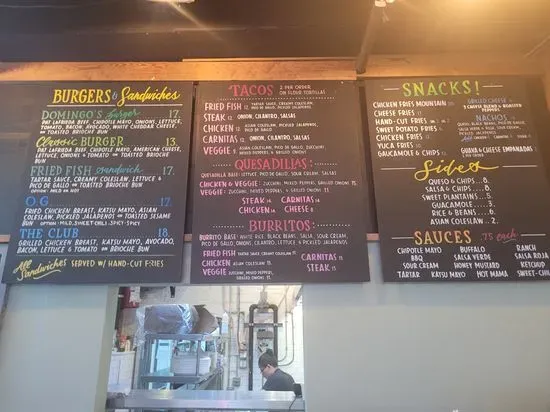 BURGERS & Sandwiches
DOMINGO'S burger 17.
PAT LAFRIEDA BEEF, CHIPOTLE MAYO, ONIONS, LETTUCE,
TOMATO, BACON, AVOCADO, WHITE CHEDDAR CHEESE,
ON TOASTED BRIOCHE BUN
Classic BURGER 13.
PAT LAFRIEDA BEEF, CHIPOTLE MAYO, AMERICAN CHEESE,
LETTUCE, ONIONS & TOMATO ON TOASTED BRIOCHE
BUN
FRIED FISH sandwich 17.
TARTAR SAUCE, CREAMY COLESLAW, LETTUCE &
PICO DE GALLO ON TOASTED BUN
OPTION: MILD OR HOT
O.G. 17.
FRIED CHICKEN BREAST, KATSU MAYO, ASIAN
COLESLAW, PICKLED JALAPENOS ON TOASTED SESAME
BUN OPTION: MILD, SWEET CHILI, SPICY
THE CLUB 18.
GRILLED CHICKEN BREAST, KATSU MAYO, AVOCADO,
BACON, LETTUCE & TOMATO ON BRIOCHE BUN
All Sandwiches SERVED W/ HAND-CUT FRIES
TACOS 2 PER ORDER ON FLOUR TORTILLAS
FRIED FISH 12. TARTAR SAUCE, CREAMY COLESLAW, PICO DE GALLO
STEAK 12. ONION, CILANTRO, SALSAS
CHICKEN 12. ASIAN COLESLAW, PICKLED JALAPENOS, PICO DE GALLO
CARNITAS 12. ONION, CILANTRO, SALSAS
VEGGIE 12. ASIAN COLESLAW, PICO DE GALLO, ZUCCHINI, MIXED PEPPERS, & GRILLED ONIONS
QUESADILLAS:
QUESADILLA BASE: LETTUCE, PICO DE GALLO, SOUR CREAM, SALSAS
CHICKEN & VEGGIE: ZUCCHINI, MIXED PEPPERS, GRILLED ONIONS 15.
VEGGIE: ASIAN COLESLAW, ZUCCHINI, MIXED PEPPERS
STEAK 14. CARNITAS 14.
CHICKEN 14. CHEESE
BURRITOS:
BURRITO BASE: WHITE RICE, BLACK BEANS, SALSA, SOUR CREAM,
PICO DE GALLO, ONIONS, CILANTRO, LETTUCE & PICKLED JALAPENOS
FRIED FISH TARTAR SAUCE, CREAMY COLESLAW
CHICKEN ASIAN COLESLAW
VEGGIE ZUCCHINI, MIXED PEPPERS, GRILLED ONIONS
CARNITAS
STEAK
SNACKS!
CHICKEN FRIES MOUNTAIN
CHEESE FRIES
HAND-CUT FRIES
SWEET POTATO FRIES
CHICKEN FRIES
YUCA FRIES
GUACAMOLE & CHIPS
GRILLED CHEESE
3 CHEESE BLEND & ROASTED PEPPERS
NACHOS
GUAVA & CHEESE EMPANADAS
Sides
QUESO & CHIPS
SALSA & CHIPS
SWEET PLANTAINS
GUACAMOLE
RICE & BEANS
ASIAN COLESLAW
SAUCES .75 each
CHIPOTLE MAYO BUFFALO RANCH
BBQ SALSA VERDE SALSA ROJA
SOUR CREAM HONEY MUSTARD KETCHUP
TARTAR KATSU MAYO HOT MAMA SWEET-